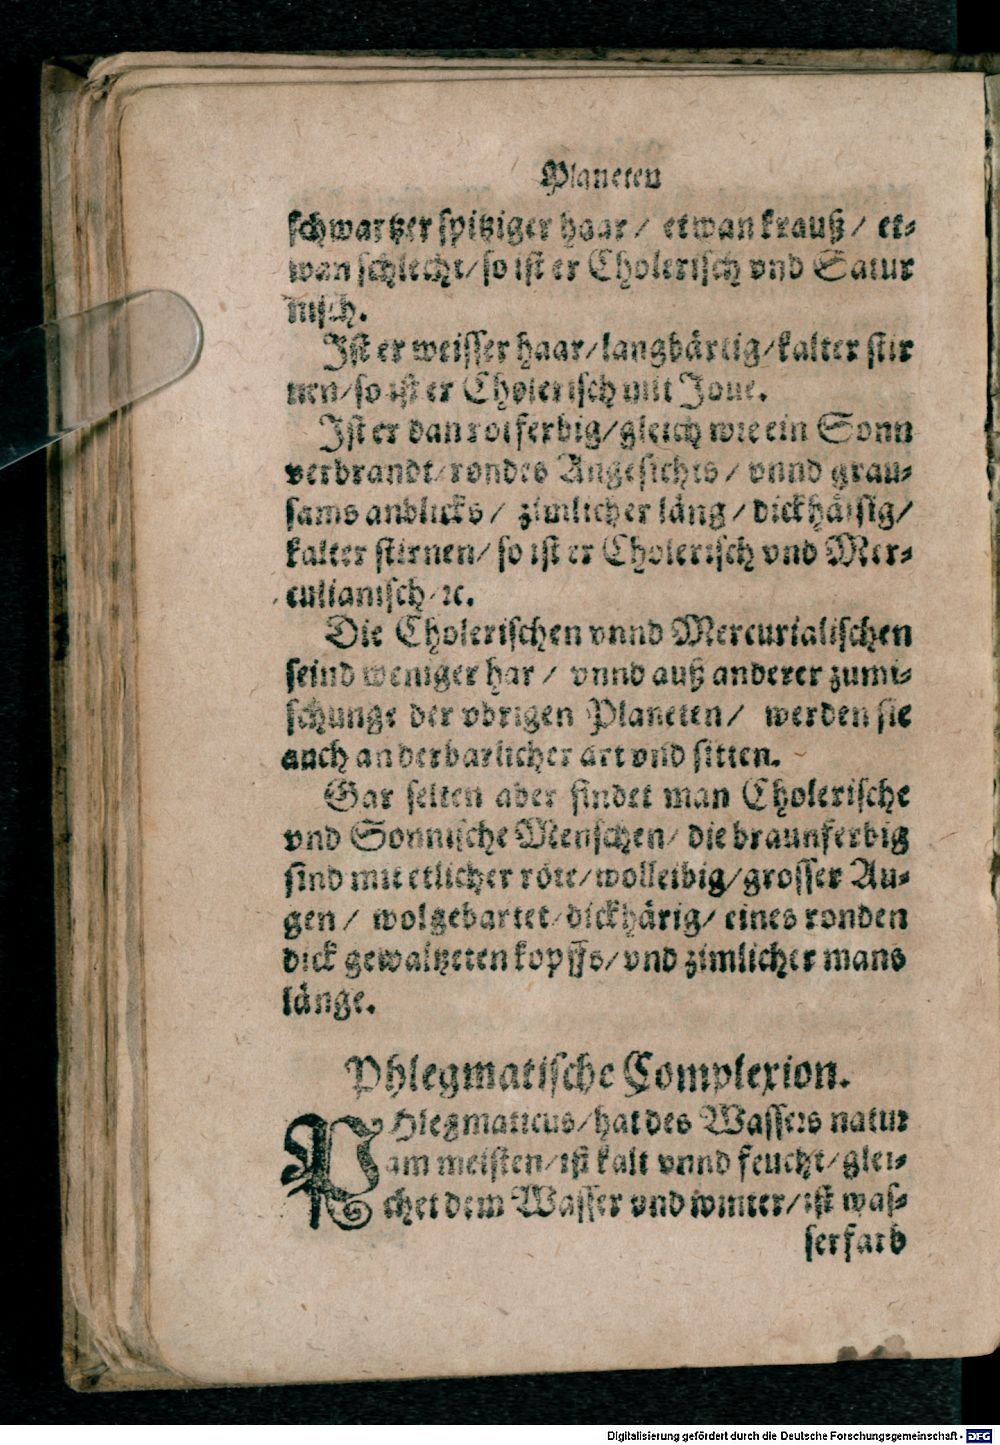 Planeten
schwartzer spitziger haar / etwan krauß / et⸗
wan schlecht / so ist er Cholerisch vnd Satur
nisch.
Ist er weisser haar / langbärtig / kalter stir
nen / so ist er Cholerisch mit Joue.
Ist er dan rotferbig / gleich wie ein Sonn
verbrandt / rondes Angesichts / vnnd grau⸗
sams anblicks / zimlicher läng / dickhälsig /
kalter stirnen / so ist er Cholerisch vnd Mer⸗
culianisch / ꝛc.
Die Cholerischen vnnd Mercurialischen
seind weniger har / vnnd auß anderer zumi⸗
schunge der vbrigen Planeten / werden sie
auch anderbarlicher art vnd sitten.
Gar selten aber findet man Cholerische
vnd Sonnische Menschen / die braunferbig
sind mit etlicher röte / wolleibig / grosser Au⸗
gen / wolgebartet / dickhärig / eines ronden
dick gewaltzeten kopffs / vnd zimlicher mans
länge.
Phlegmatische Complexion.
PHlegmaticus / hat des Wassers natur
am meisten / ist kalt vnnd feucht / glei⸗
chet dem Wasser vnd winter / ist was⸗
serfarb
Digitalisierung gefördert durch die Deutsche Forschungsgemeinschaft - DFG